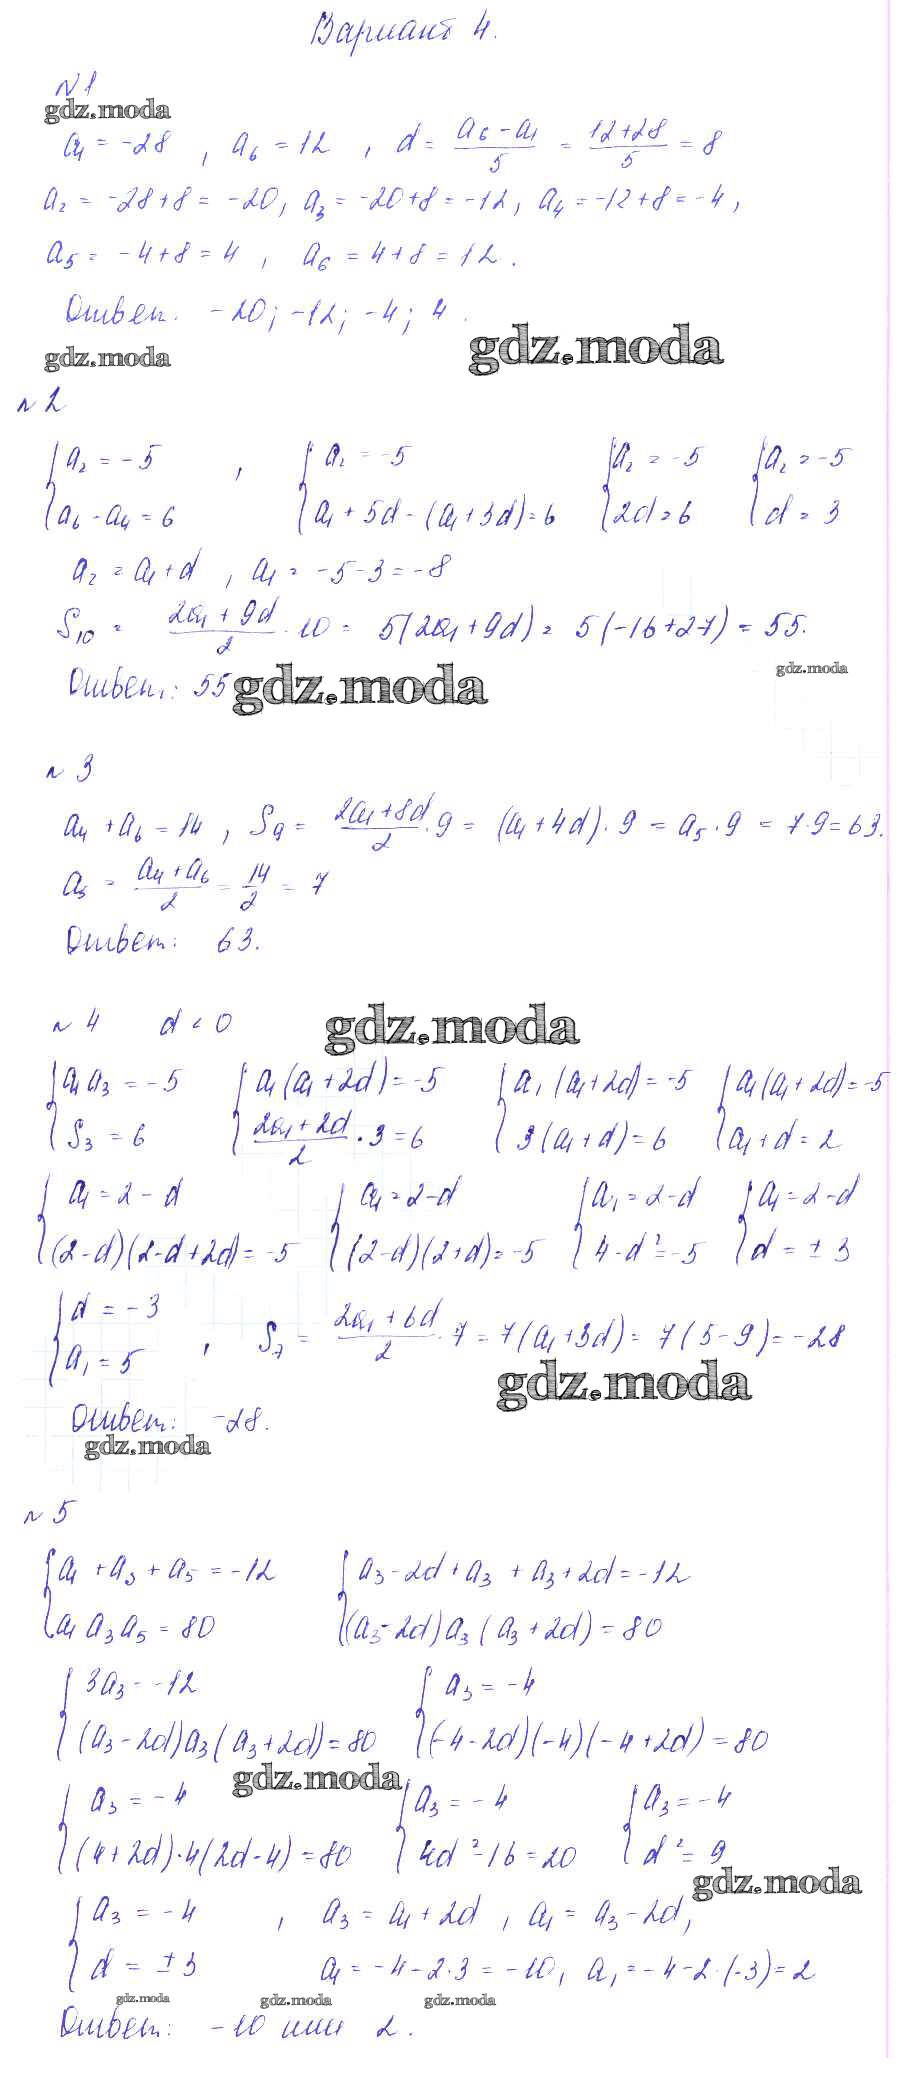 Вариант 4.
№1
gdz.moda
a₁ = -28 , a₆ = 12 , d = (a₆ - a₁)/5 = (12+28)/5 = 8
a₂ = -28+8 = -20, a₃ = -20+8 = -12, a₄ = -12+8 = -4,
a₅ = -4+8 = 4 , a₆ = 4+8 = 12.
Ответ. -20; -12; -4; 4.
gdz.moda gdz.moda
№2
{a₂ = -5 , {a₂ = -5 {a₂ = -5 {a₂ = -5
{a₆ - a₄ = 6 {a₁ + 5d - (a₁ + 3d) = 6 {2d = 6 {d = 3
a₂ = a₁ + d , a₁ = -5-3 = -8
S₁₀ = (2a₁ + 9d)/2 · 10 = 5(2a₁ + 9d) = 5(-16+27) = 55.
gdz.moda
Ответ: 55 gdz.moda
№3
a₄ + a₆ = 14 , S₉ = (2a₁+8d)/2 · 9 = (a₁+4d) · 9 = a₅ · 9 = 7·9 = 63.
a₅ = (a₄ + a₆)/2 = 14/2 = 7
Ответ: 63.
№4 d < 0 gdz.moda
{a₁a₃ = -5 {a₁(a₁+2d) = -5 {a₁(a₁+2d) = -5 {a₁(a₁+2d) = -5
{S₃ = 6 {(2a₁+2d)/2 · 3 = 6 {3(a₁+d) = 6 {a₁+d = 2
{a₁ = 2-d {a₁ = 2-d {a₁ = 2-d {a₁ = 2-d
{(2-d)(2-d+2d) = -5 {(2-d)(2+d) = -5 {4-d² = -5 {d = ±3
{d = -3
{a₁ = 5 , S₇ = (2a₁+6d)/2 · 7 = 7(a₁+3d) = 7(5-9) = -28
gdz.moda
Ответ: -28.
gdz.moda
№5
{a₁ + a₃ + a₅ = -12 {a₃-2d+a₃ + a₃+2d = -12
{a₁a₃a₅ = 80 {(a₃-2d)a₃(a₃+2d) = 80
{3a₃ = -12 {a₃ = -4
{(a₃-2d)a₃(a₃+2d) = 80 {(-4-2d)(-4)(-4+2d) = 80
gdz.moda
{a₃ = -4 {a₃ = -4 {a₃ = -4
{(4+2d)·4(2d-4) = 80 {4d²-16 = 20 {d² = 9
gdz.moda
{a₃ = -4 , a₃ = a₁+2d , a₁ = a₃-2d,
{d = ±3 a₁ = -4-2·3 = -10, a₁ = -4-2·(-3) = 2
gdz.moda gdz.moda gdz.moda
Ответ: -10 или 2.